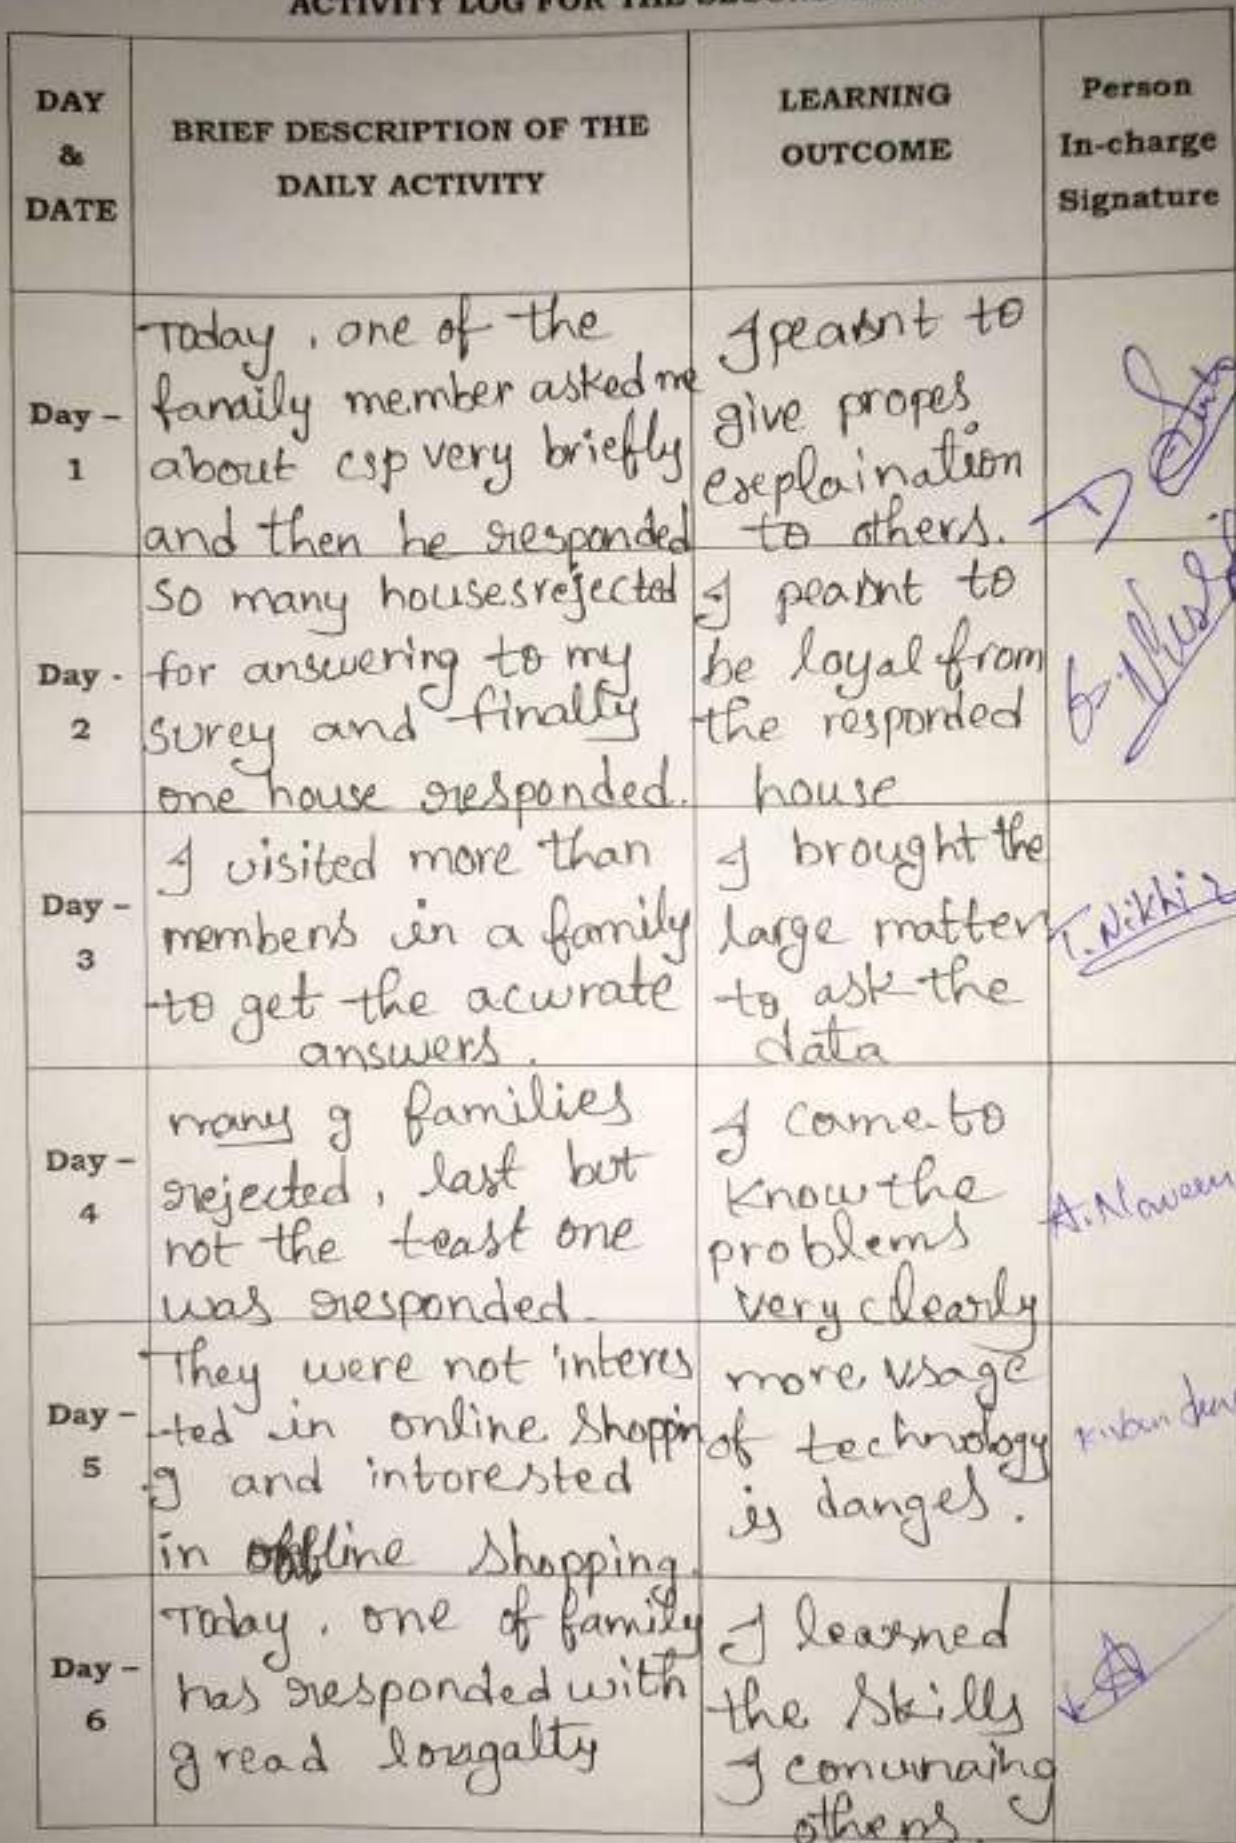 ACTIVITY LOG FOR THE SECOND
DAY
&
DATE
BRIEF DESCRIPTION OF THE
DAILY ACTIVITY
LEARNING
OUTCOME
Person
In-charge
Signature
Day –
1
Today, one of the
family member asked me
about csp very briefly
and then he responded
I pearnt to
give propes
exeplaination
to others.
Day -
2
So many houses rejected
for answering to my
surey and finally
one house responded.
I pearnt to
be loyal from
the responded
house
Day –
3
I visited more than
members in a family
to get the acurate
answers.
I brought the
large matter
to ask the
data
T. Nikhi
Day –
4
many g families
rejected, last but
not the teast one
was responded.
I came to
know the
problems
very clearly
A. Naveen
Day –
5
They were not interes
-ted in online shoppin
g and intorested
in offline shopping.
more usage
of technology
is danges.
Day –
6
Today, one of family
has responded with
gread lougalty
I learned
the skills
I conunaing
others.